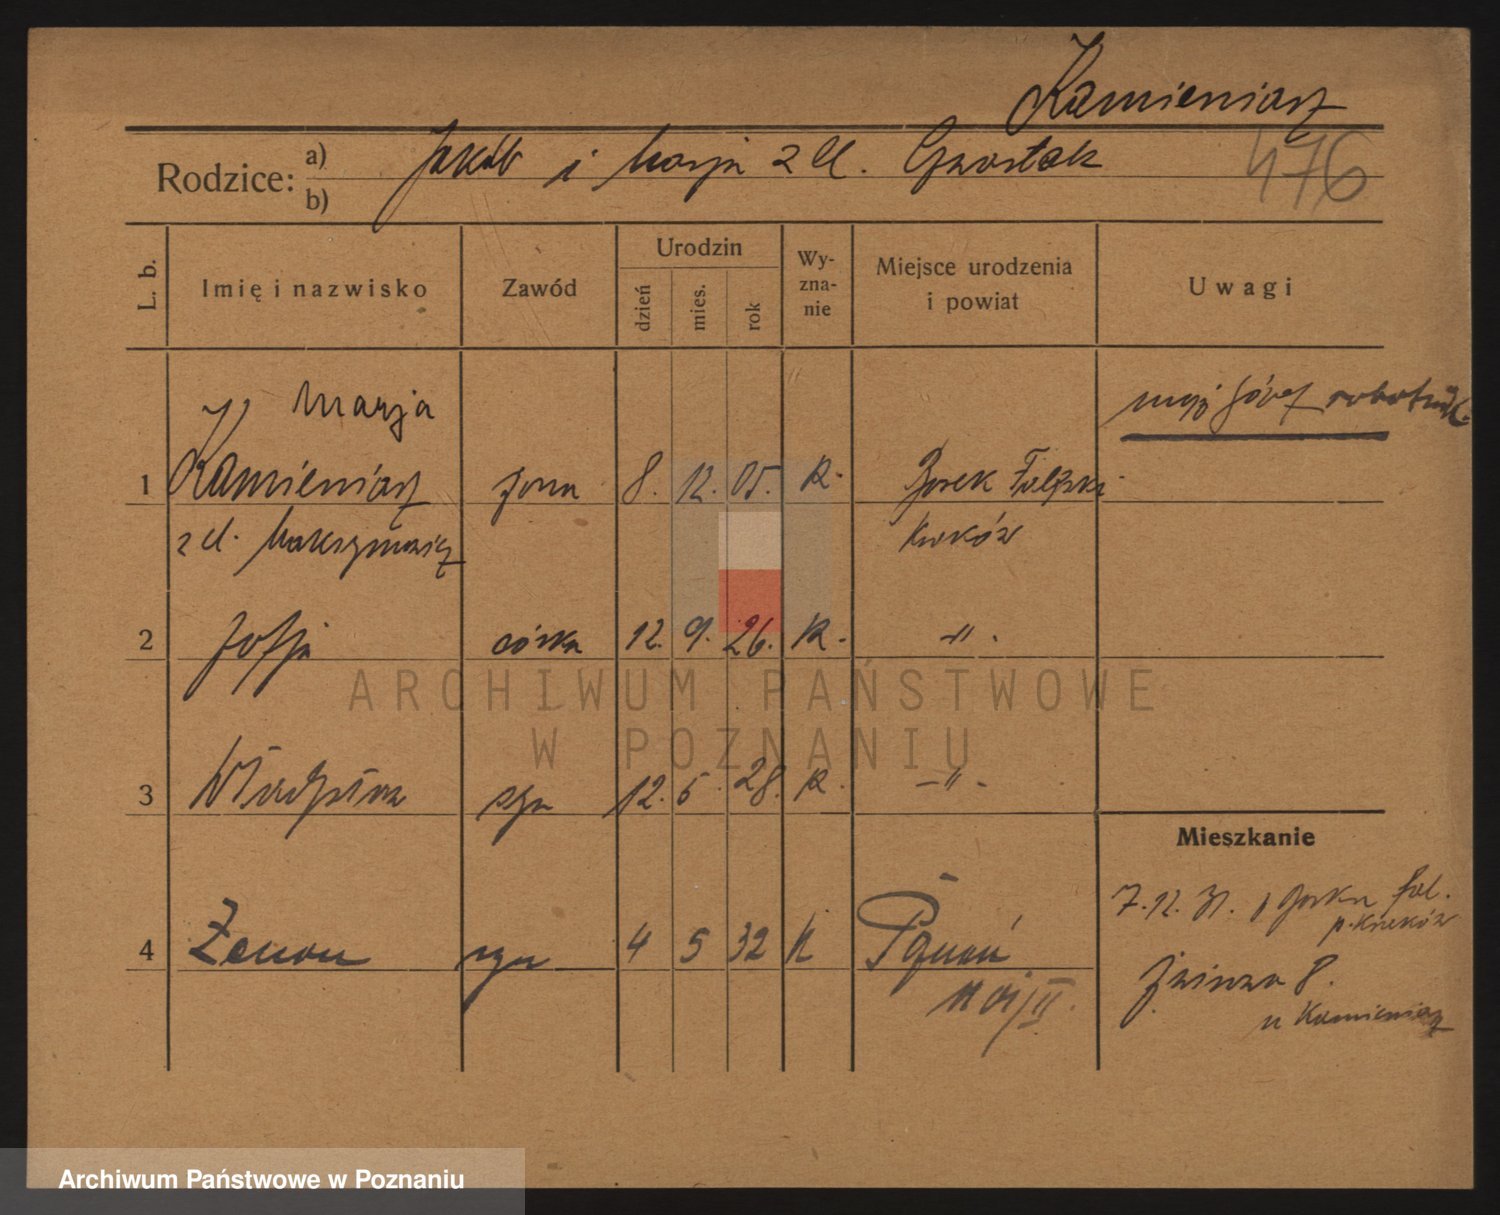 Kamieniarz
Rodzice: a) Jakób i Marja z d. Gwostek
b)
476
L. b.
Imię i nazwisko
Zawód
Urodzin
dzień
mies.
rok
Wy-
zna-
nie
Miejsce urodzenia
i powiat
Uwagi
Marja
mąż Józef robotnik.
1 Kamieniarz żona 8. 12. 05. K. Borek Falęcki
z d. Maksymowicz Kraków
2 Zofja córka 12. 9. 26. K. -"-.
3 Władysław syn 12. 6. 28. K. -"-.
Mieszkanie
7.12.31. z Borku Fal.
p. Kraków
4 Zenon syn 4 5 32 K Poznań
8.
u Kamieniarz
ARCHIWUM PAŃSTWOWE
W POZNANIU
Archiwum Państwowe w Poznaniu